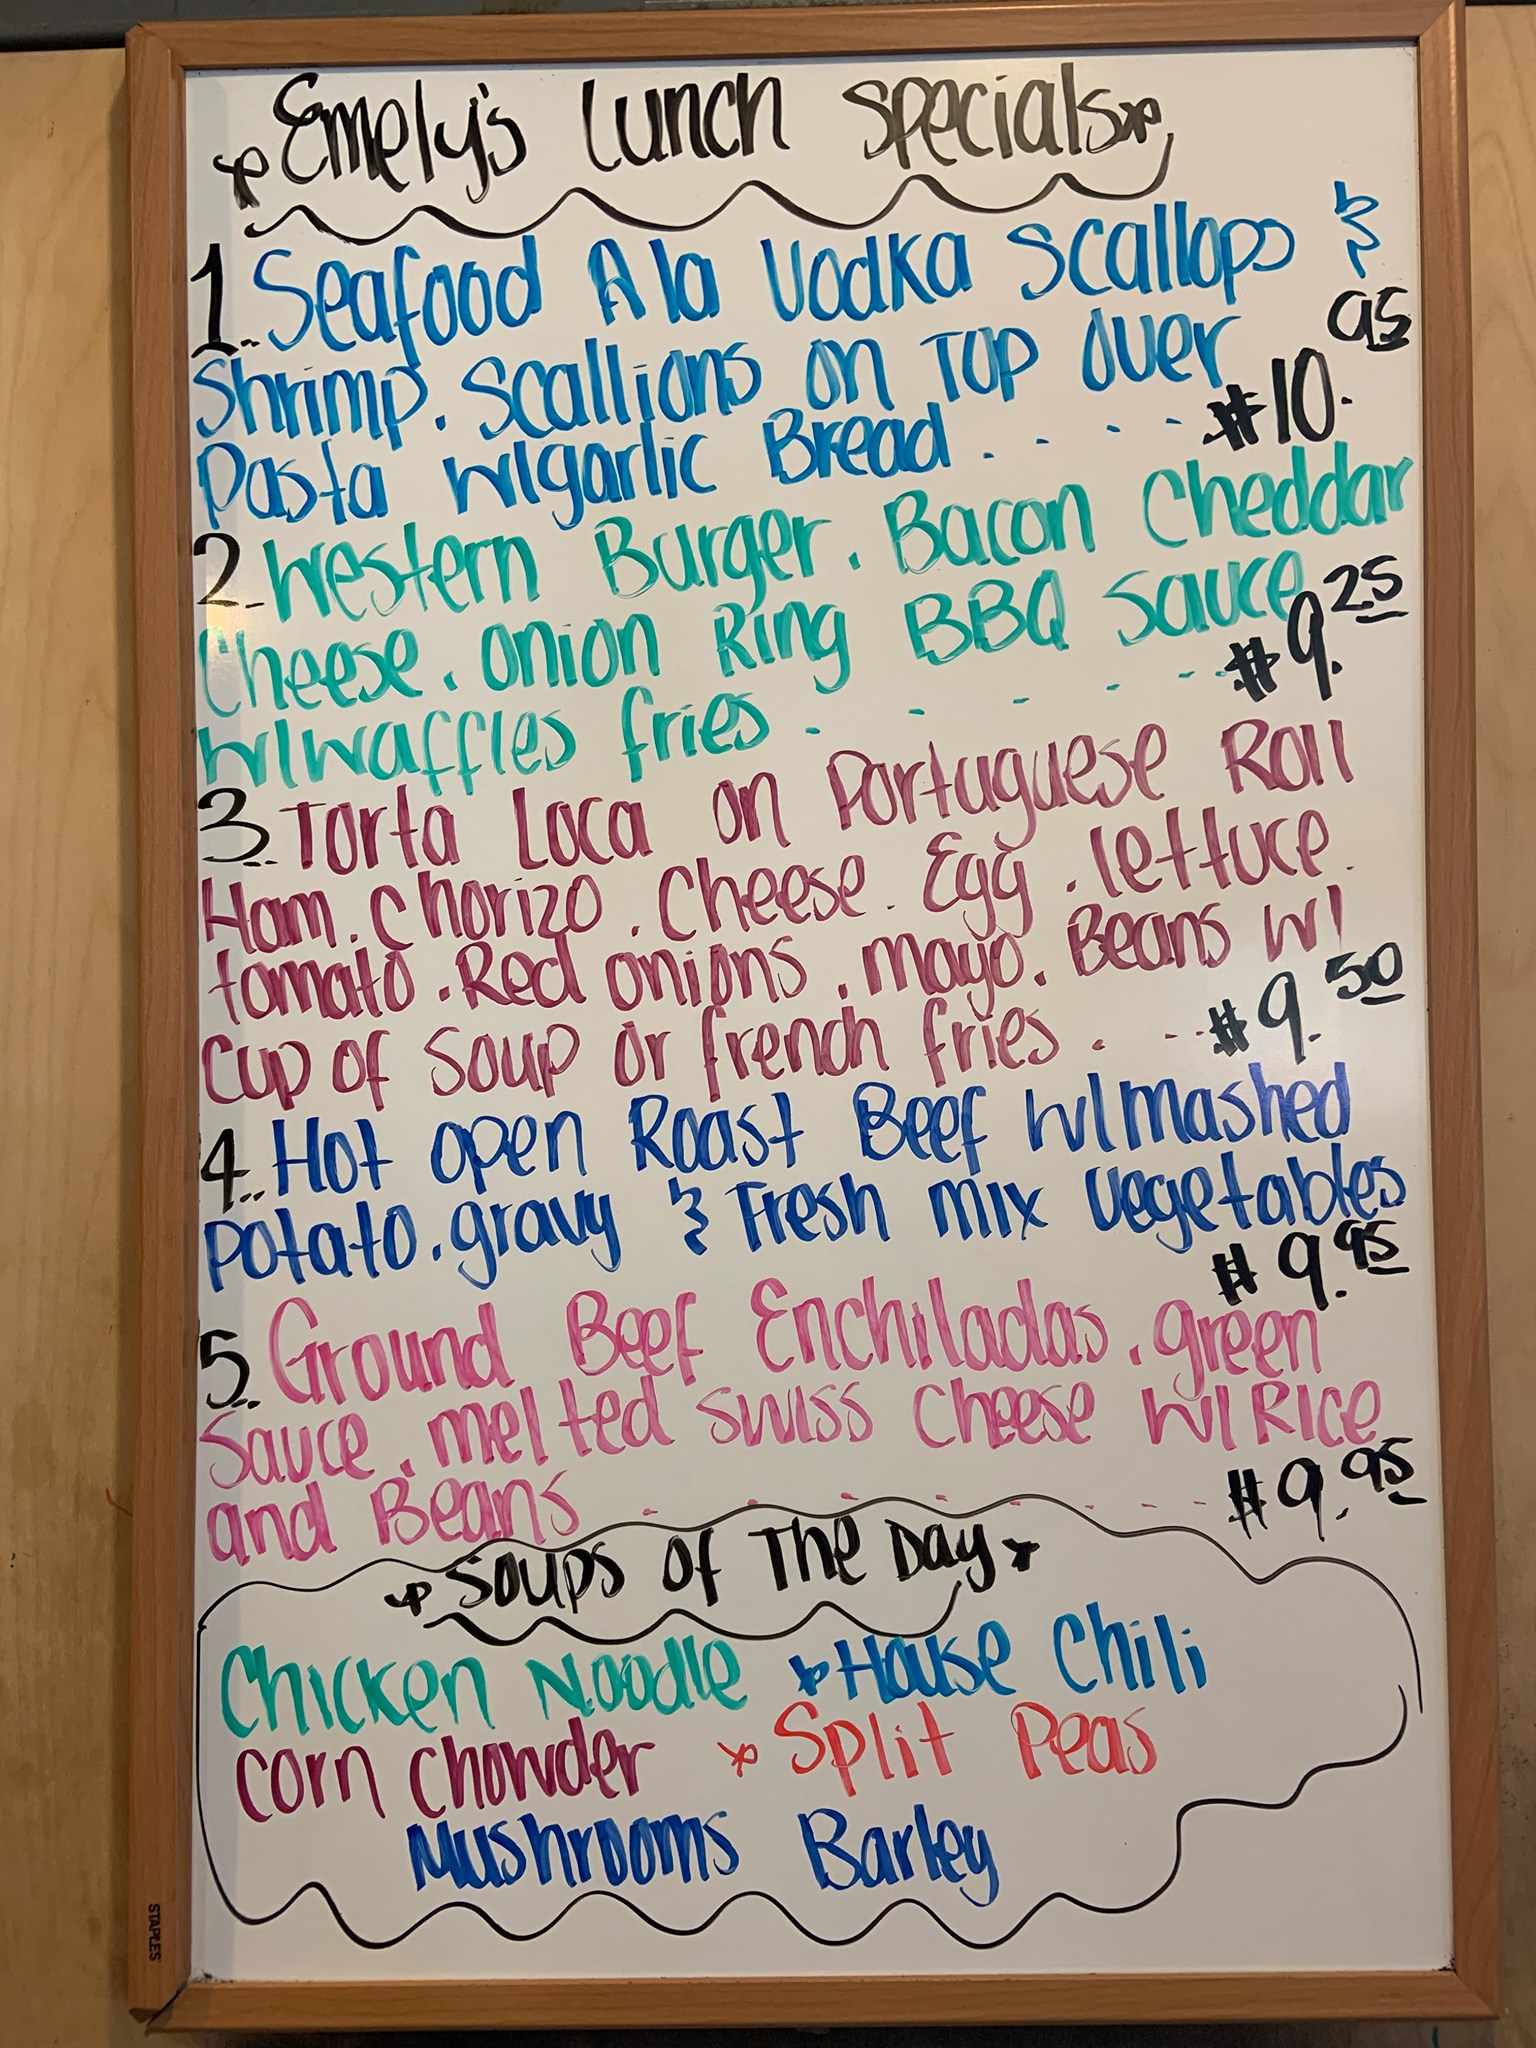 Emely's Lunch Specials
1. Seafood A la Vodka Scallops &
Shrimp. Scallions on Top over
Pasta w/garlic Bread . . . . . $10.95
2. Western Burger. Bacon Cheddar
Cheese. Onion Ring BBQ Sauce
w/waffles fries . . . . . $9.25
3. Torta Loca on Portuguese Roll
Ham. Chorizo. Cheese. Egg. lettuce.
tomato. Red onions. mayo. Beans w/
Cup of Soup or french fries . . . $9.50
4. Hot open Roast Beef w/mashed
potato. gravy & Fresh mix vegetables
$9.95
5. Ground Beef Enchiladas. green
Sauce. melted swiss cheese w/Rice
and Beans . . . . . . . $9.95
Soups of The Day
Chicken Noodle House Chili
Corn chowder Split Peas
Mushrooms Barley
STAPLES